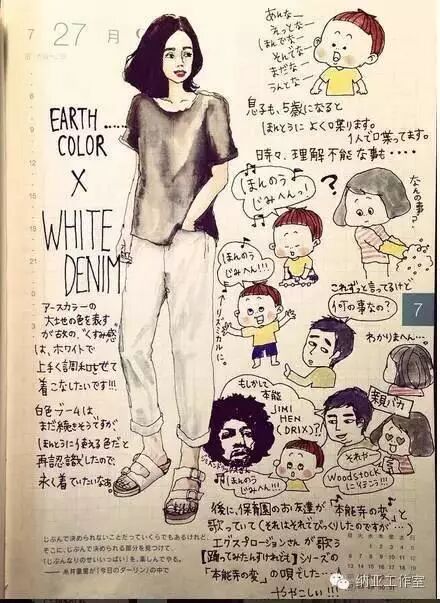 7 27 月
EARTH
COLOR
X
WHITE
DENIM
アースカラーの
大地の色を表す
が故の、"くすみ感"
は、ホワイトで
上手く調和させて
着こなしたいです!!!
白色ブームは
まだ続きそうですが
ほんとうに使える色だと
再認識したので、
永く着ていたいなぁ。
じぶんで決められないことだっていくらでもあるけれど、
そこに、じぶんで決められる部分を見つけて、
「じぶんなりのせいいっぱい」を、楽しんでやる。
──糸井重里が『今日のダーリン』の中で
あんなー
えっとなー
ほんでなー
そんでなー
まだなー
うんとなー
息子も、5歳になると
ほんとうによく喋ります。
1人で喋ってます。
時々、理解不能な事も・・・・
ほんのう
じみへんっ!
?
なんの事?
ほんのう
じみへん!!!
リズミカルに。
これずっと言ってるけど
何の事なの?
わかりまへん...
もしかして
本能
JIMI
HEN
(DRIX)?!
親バカ
ほんのう
じみへん!!!
それやー
Woodstock
に行こう!!!
7
後に、保育園のお友達が「本能寺の変」と
歌っていて(それはそれでびっくりしたのですが…)
エグスプロージョンさんが歌う
【踊ってみたんすけれども】シリーズの
「本能寺の変」の唄でした・・・
ややこしい!!!
纳亚工作室